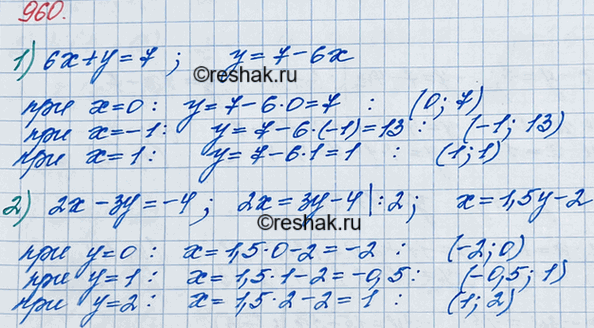 960.
1) 6x+y=7 ; y=7-6x
©reshak.ru
при x=0: y=7-6·0=7 : (0; 7)
при x=-1: y=7-6·(-1)=13 : (-1; 13)
при x=1: y=7-6·1=1 : (1; 1)
2) 2x-3y=-4; 2x=3y-4|:2; x=1,5y-2
©reshak.ru
при y=0: x=1,5·0-2=-2 : (-2; 0)
при y=1: x=1,5·1-2=-0,5: (-0,5; 1)
при y=2: x=1,5·2-2=1 : (1; 2)